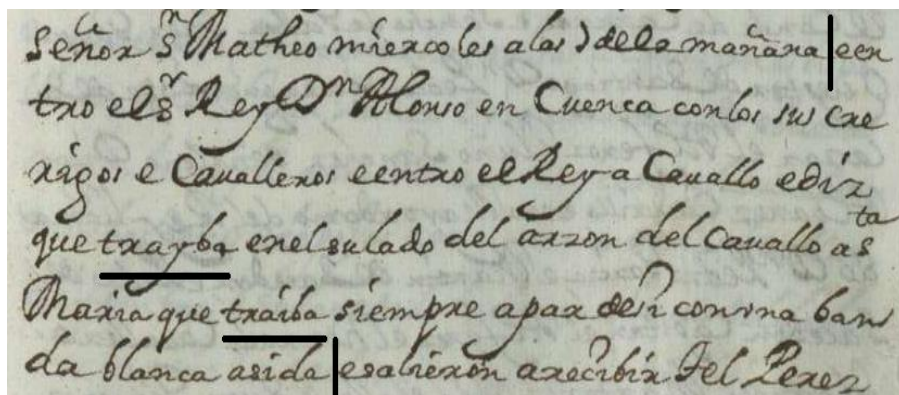 Señor Sⁿ Matheo miercoles alas 7 dela mañana een
tro el Sʳ Rey Dⁿ Alonso en Cuenca conlos sus cre
rigos e Cavalleros eentro el Rey a Cavallo ediz
que trayba enel sulado del arzon del Cavallo a sᵗᵃ
Maria que traiba siempre apar desi conuna ban
da blanca asida esalieron arecibir Fel Perez